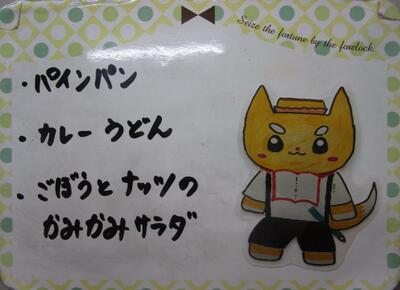 Seize the fortune by the forelock.
・パインパン
・カレーうどん
・ごぼうとナッツの
かみかみサラダ